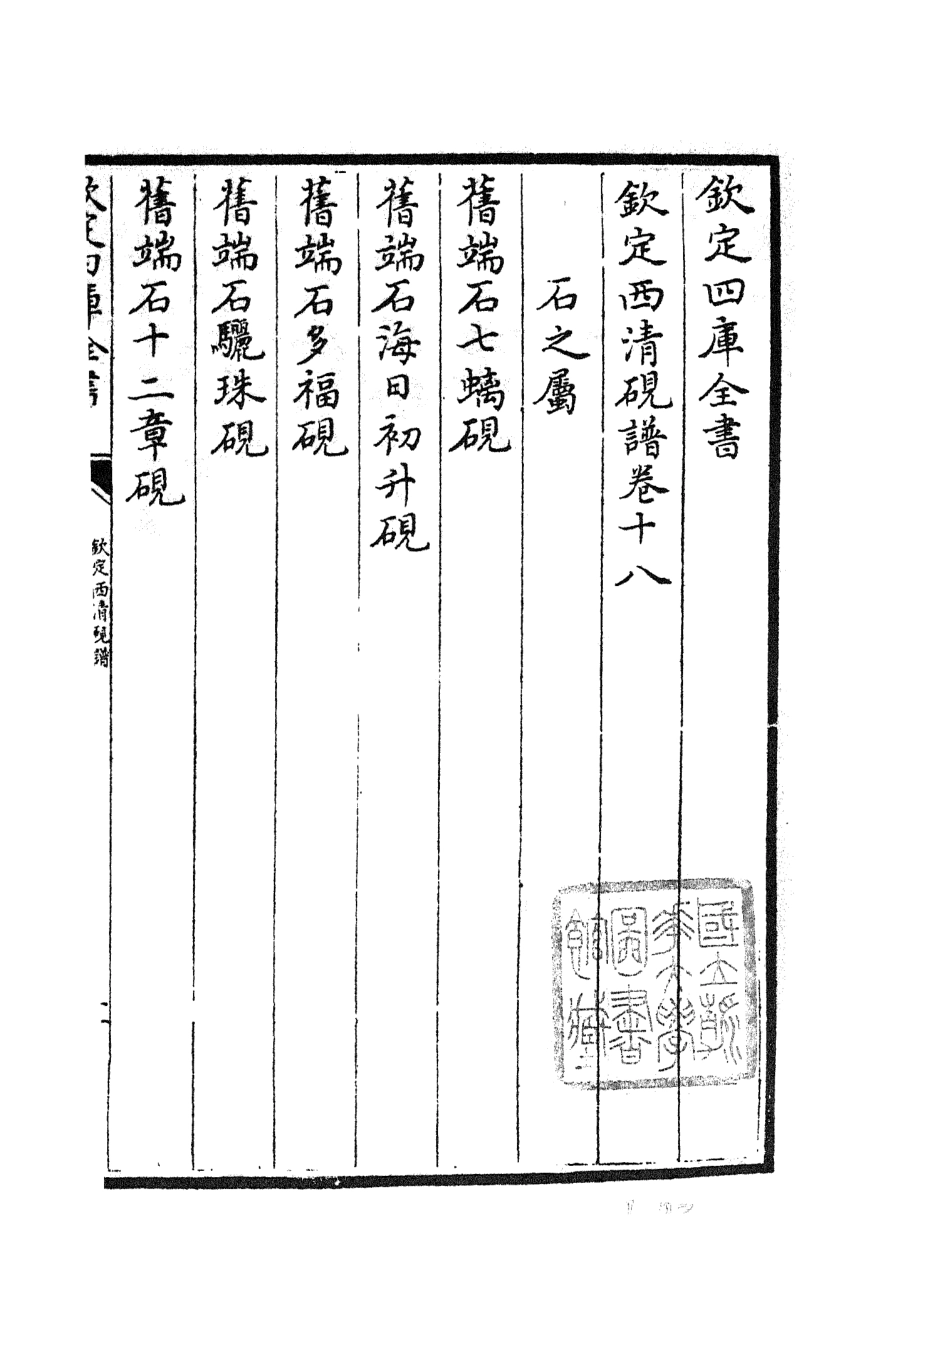 欽定四庫全書
欽定西清硯譜卷十八
石之屬
舊端石七螭硯
舊端石海日初升硯
舊端石多福硯
舊端石驪珠硯
舊端石十二章硯
欽定四庫全書
欽定西清硯譜
國立清華大學圖書館藏